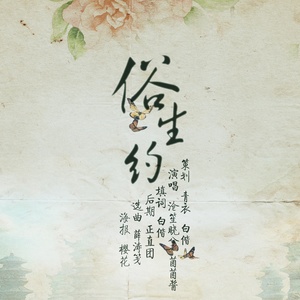 俗生约
策划 青衣 白偕
演唱 沧笙晓 茵茵酱
填词 白偕
后期 正直团
选曲 薛涛笺
海报 樱花